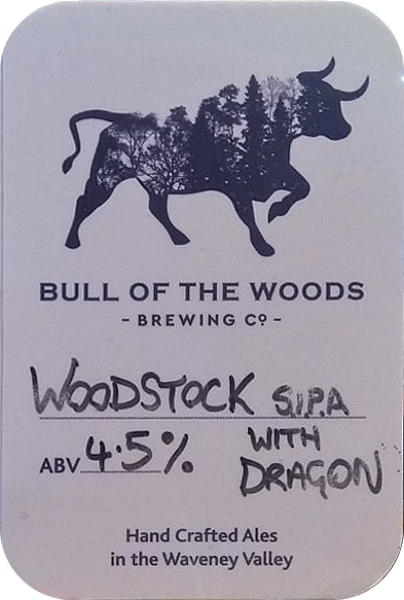 BULL OF THE WOODS
- BREWING Cº -
WOODSTOCK S.I.P.A
ABV 4.5% WITH
DRAGON
Hand Crafted Ales
in the Waveney Valley